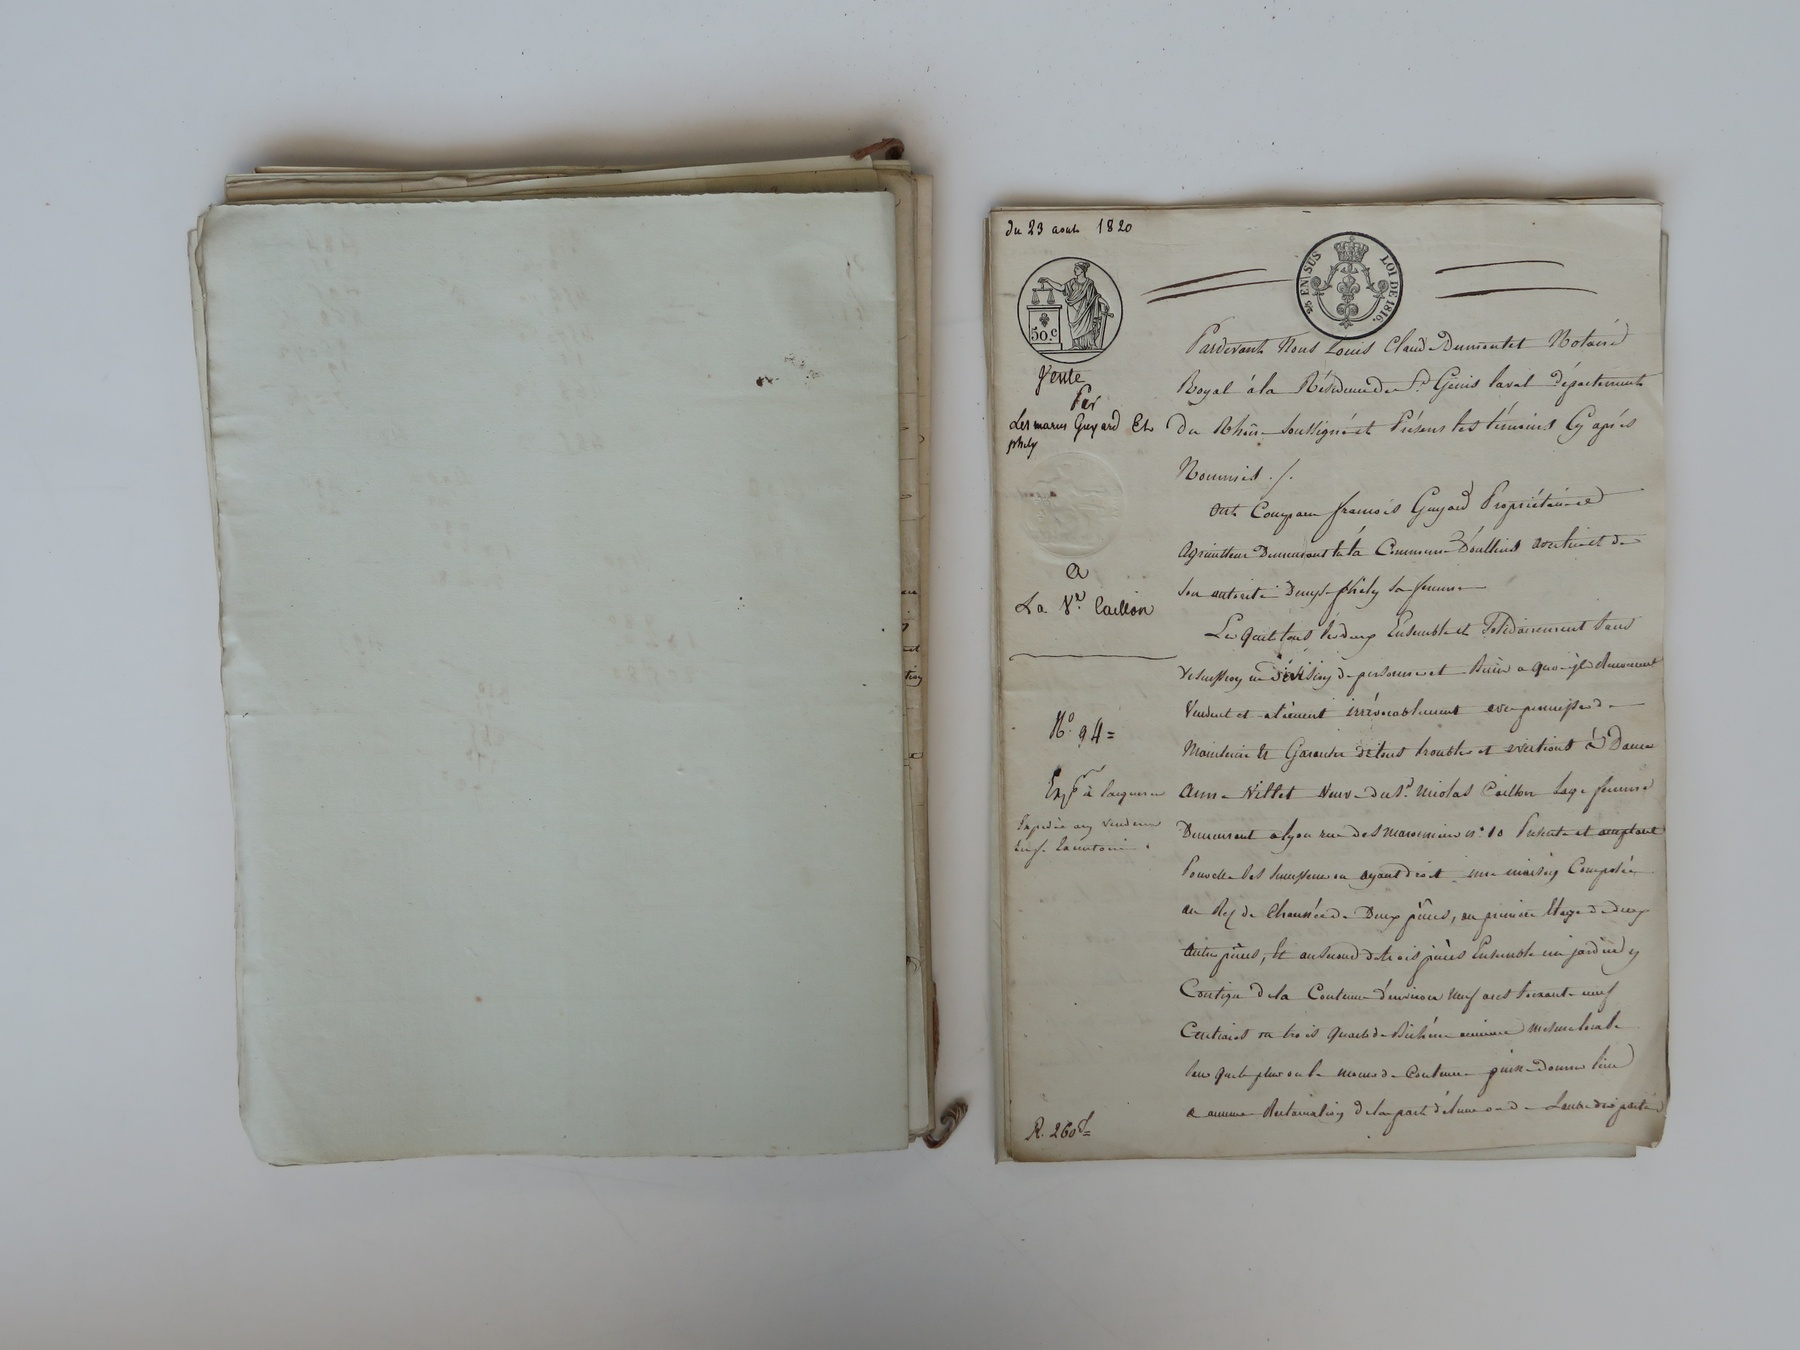 du 23 aout 1820
50.c
25. EN SUS LOI DE 1816.
Vente
Par
Les maries Guyard Et
phely
a
La Ve. Caillon
N° 94=
Expon à lacquereur
Expediée aux vendeurs
R. 260
Pardevant Nous Louis Claude Dumontet Notaire
Royal à la Résidence de St. Genis laval département
du Rhône soussigné et Présens les témoins Cy après
Nommés ./.
Ont Comparu françois Guyard Propriétaire
agriculteur Demeurant à la Commune D'oullins et de
son autorité phely sa femme
Lesquels tous les deux Ensemble et Solidairement sans
division de personnes et Biens a quoi ils Renoncent
Vendent et aliénent irrévocablement avec promesse de
Maintenir Et Garantir de tous troubles et evictions à Dame
anne Nillet Veuve du Sr. Nicolas Caillon sage femme
Demeurant a lyon rue des maronniers n°. 10 Présente et acceptant
Pour elle Ses successeurs ou ayant droit une maison Composée
au Rez de Chaussée de Deux pièces, au premier Etage de deux
autres pièces, Et au second de trois pièces Ensemble un jardin y
Contigu de la Contenue d'environ Neuf ares soixante neuf
Centiares ou trois quarts de Bicherée mesure locale
sans que le plus ou le moins de Contenue puisse Donner lieu
a aucune Reclamation de la part de l'une ou de Lautre des parties